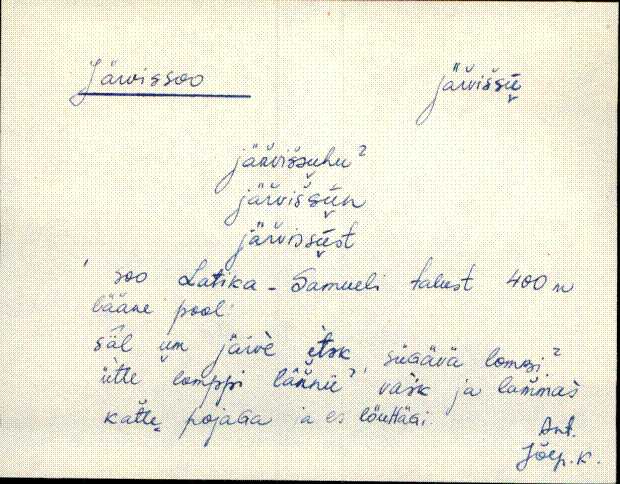 Järvissoo järvišsü̬
järvišsuhu²
järvišsü̬n
järvissü̬st
soo Latika-Samueli talust 400 m
lääne pool.
säl um järvè ̀ sügävä lompi²
ütte lomppi lännü² vašk ja lammas
katte pojaGa ja es löuttäGi.
Ant.
Jõep. k.